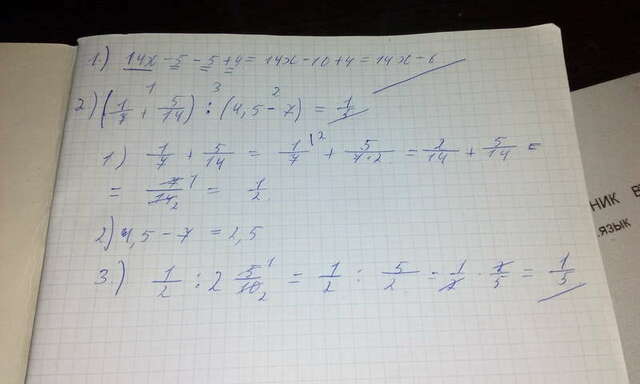 1.) 14x - 5 - 5 + 4 = 14x - 10 + 4 = 14x - 6
1 3 2
2) (1/7 + 5/14) : (4,5 - 7) = 1/5
1) 1/7 + 5/14 = 1/7 |2 + 5/7·2 = 2/14 + 5/14 =
= 7/14 1 2 = 1/2
2) 4,5 - 7 = 2,5
3.) 1/2 : 2 5/10 1 2 = 1/2 : 5/2 = 1/2 · 2/5 = 1/5
НИК
язык